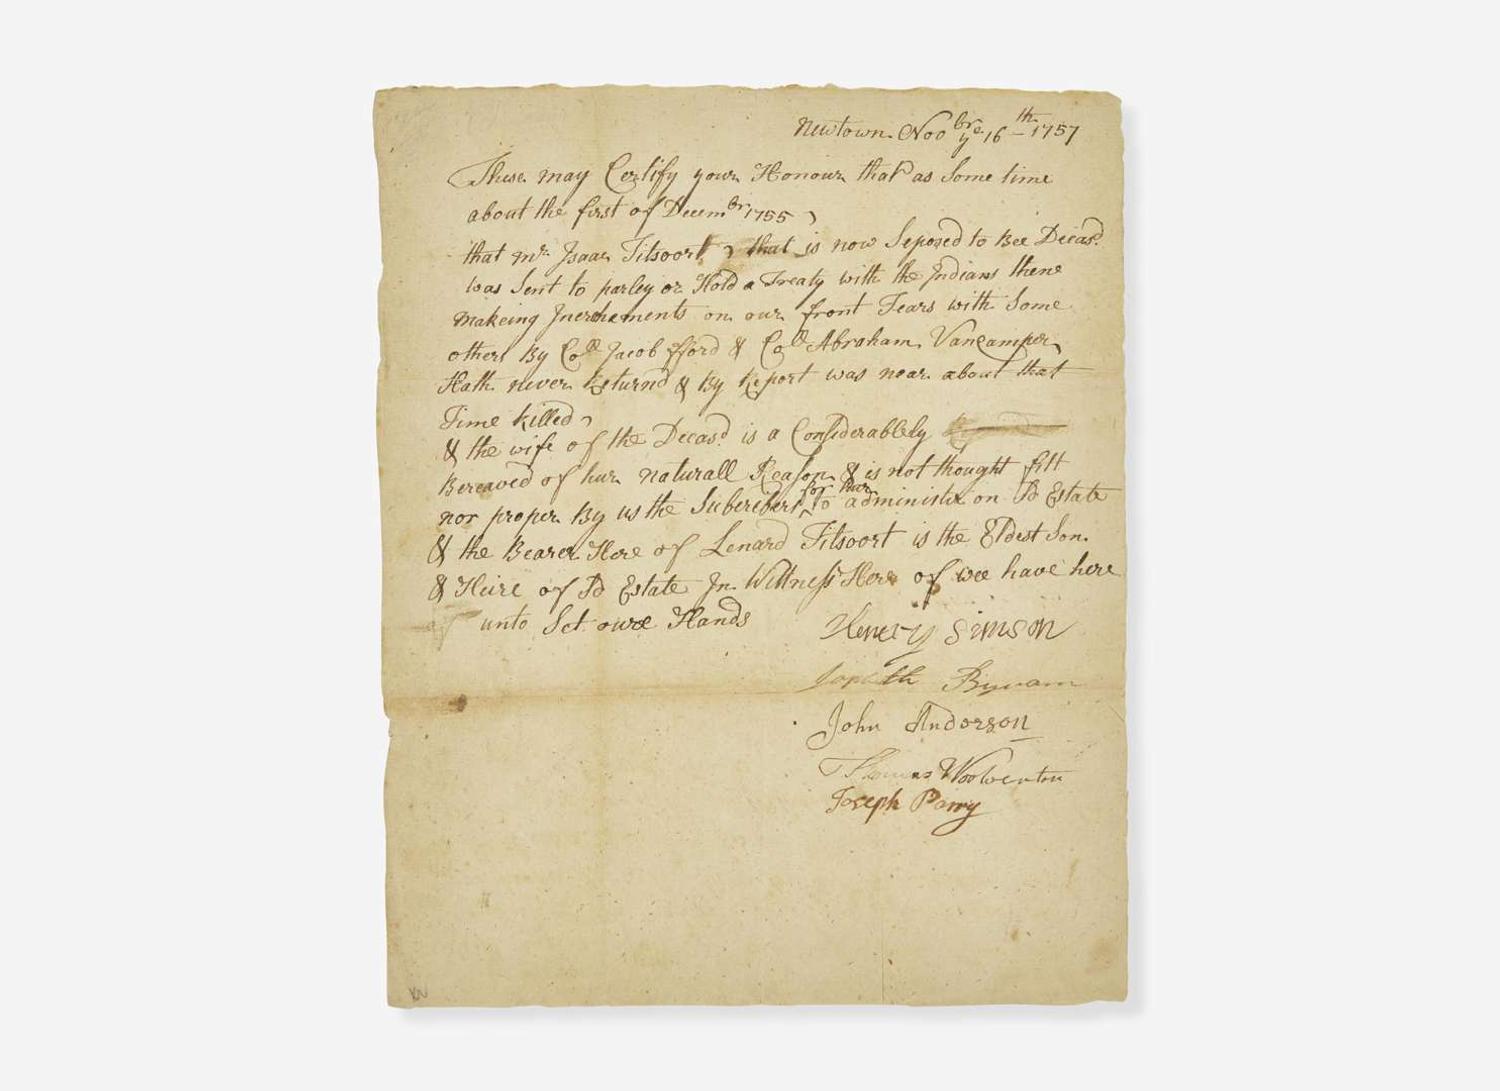 Newtown Noobre ye 16th 1757
These may Certify your Honour that as Some time
about the first of Decembr 1755
that mr Isaac Titsoort that is now Seposed to Bee Decasd
was Sent to parley or Hold a Treaty with the Indians there
makeing Incrhements on our front Tears with Some
others By Coll Jacob fford & Coll Abraham Vancamper
Hath never Returnd & By Report was near about that
Time killed
& the wife of the Decasd is a Considerablely
Bereaved of hur naturall Reason & is not thought fitt
nor proper By us the Subcribers for hur to administer on Sd Estate
& the Bearer Here of Lenard Titsoort is the Eldest Son
& Heire of Sd Estate In Wittness Here of wee have here
unto Set oure Hands
Henery Simson
John Anderson
Thomas Woolverton
Joseph Parry